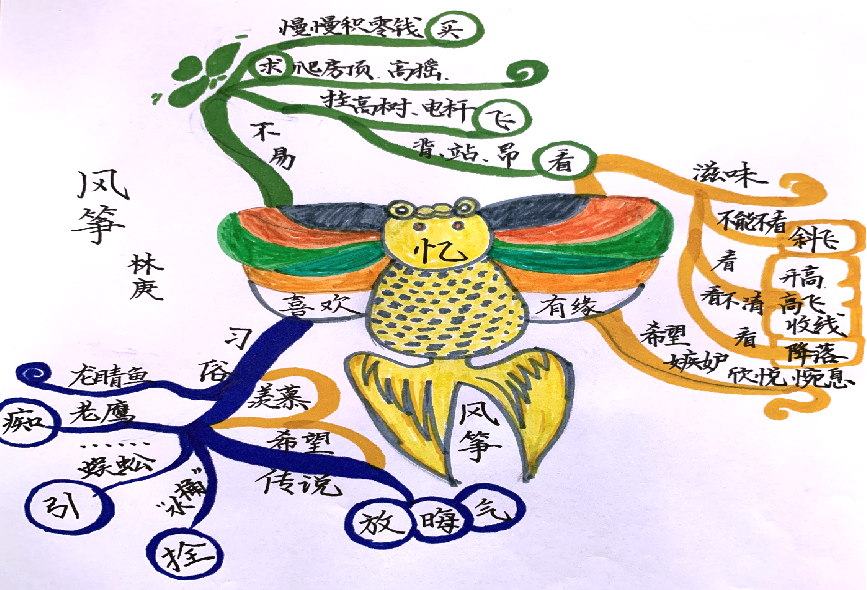 风筝
林庚
慢慢积零钱 买
求 爬房顶、高摇、
挂高树、电杆 飞
背、站、昂 看
不易
滋味
不能不看 斜飞
看 开高
看不清 高飞
收线
看 降落
希望
嫉妒
欣悦 惋息
忆
喜欢
有缘
风筝
习俗
龙睛鱼
老鹰
痴
……
蜈蚣
引
“水桶”
拴
羡慕
希望
传说
放 晦 气